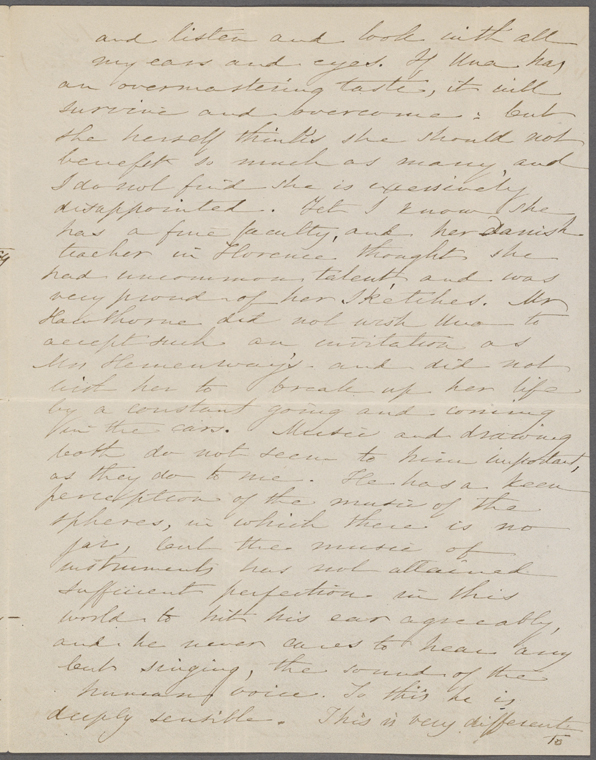 and listen and look with all
my ears and eyes. If Una has
an overmastering taste, it will
survive and overcome: but
she herself thinks she should not
benefit so much as many and
I do not find she is excessively
disappointed. Yet I know she
has a fine faculty, and her Danish
teacher in Florence thought she
had uncommon talent and was
very proud of her Sketches. Mr
Hawthorne did not wish Una to
accept such an invitation as
Mrs Hemenway's and did not
wish her to break up her life
by a constant going and coming
in the cars. Music and drawing
both do not seem to him important,
as they do to me. He has a keen
perception of the music of the
spheres, in which there is no
jar, but the music of
instruments has not attained
sufficient perfection in this
world to hit his ear agreeably,
and he never cares to hear any
but singing, the sound of the
human voice. To this he is
deeply sensible. This is very different
to